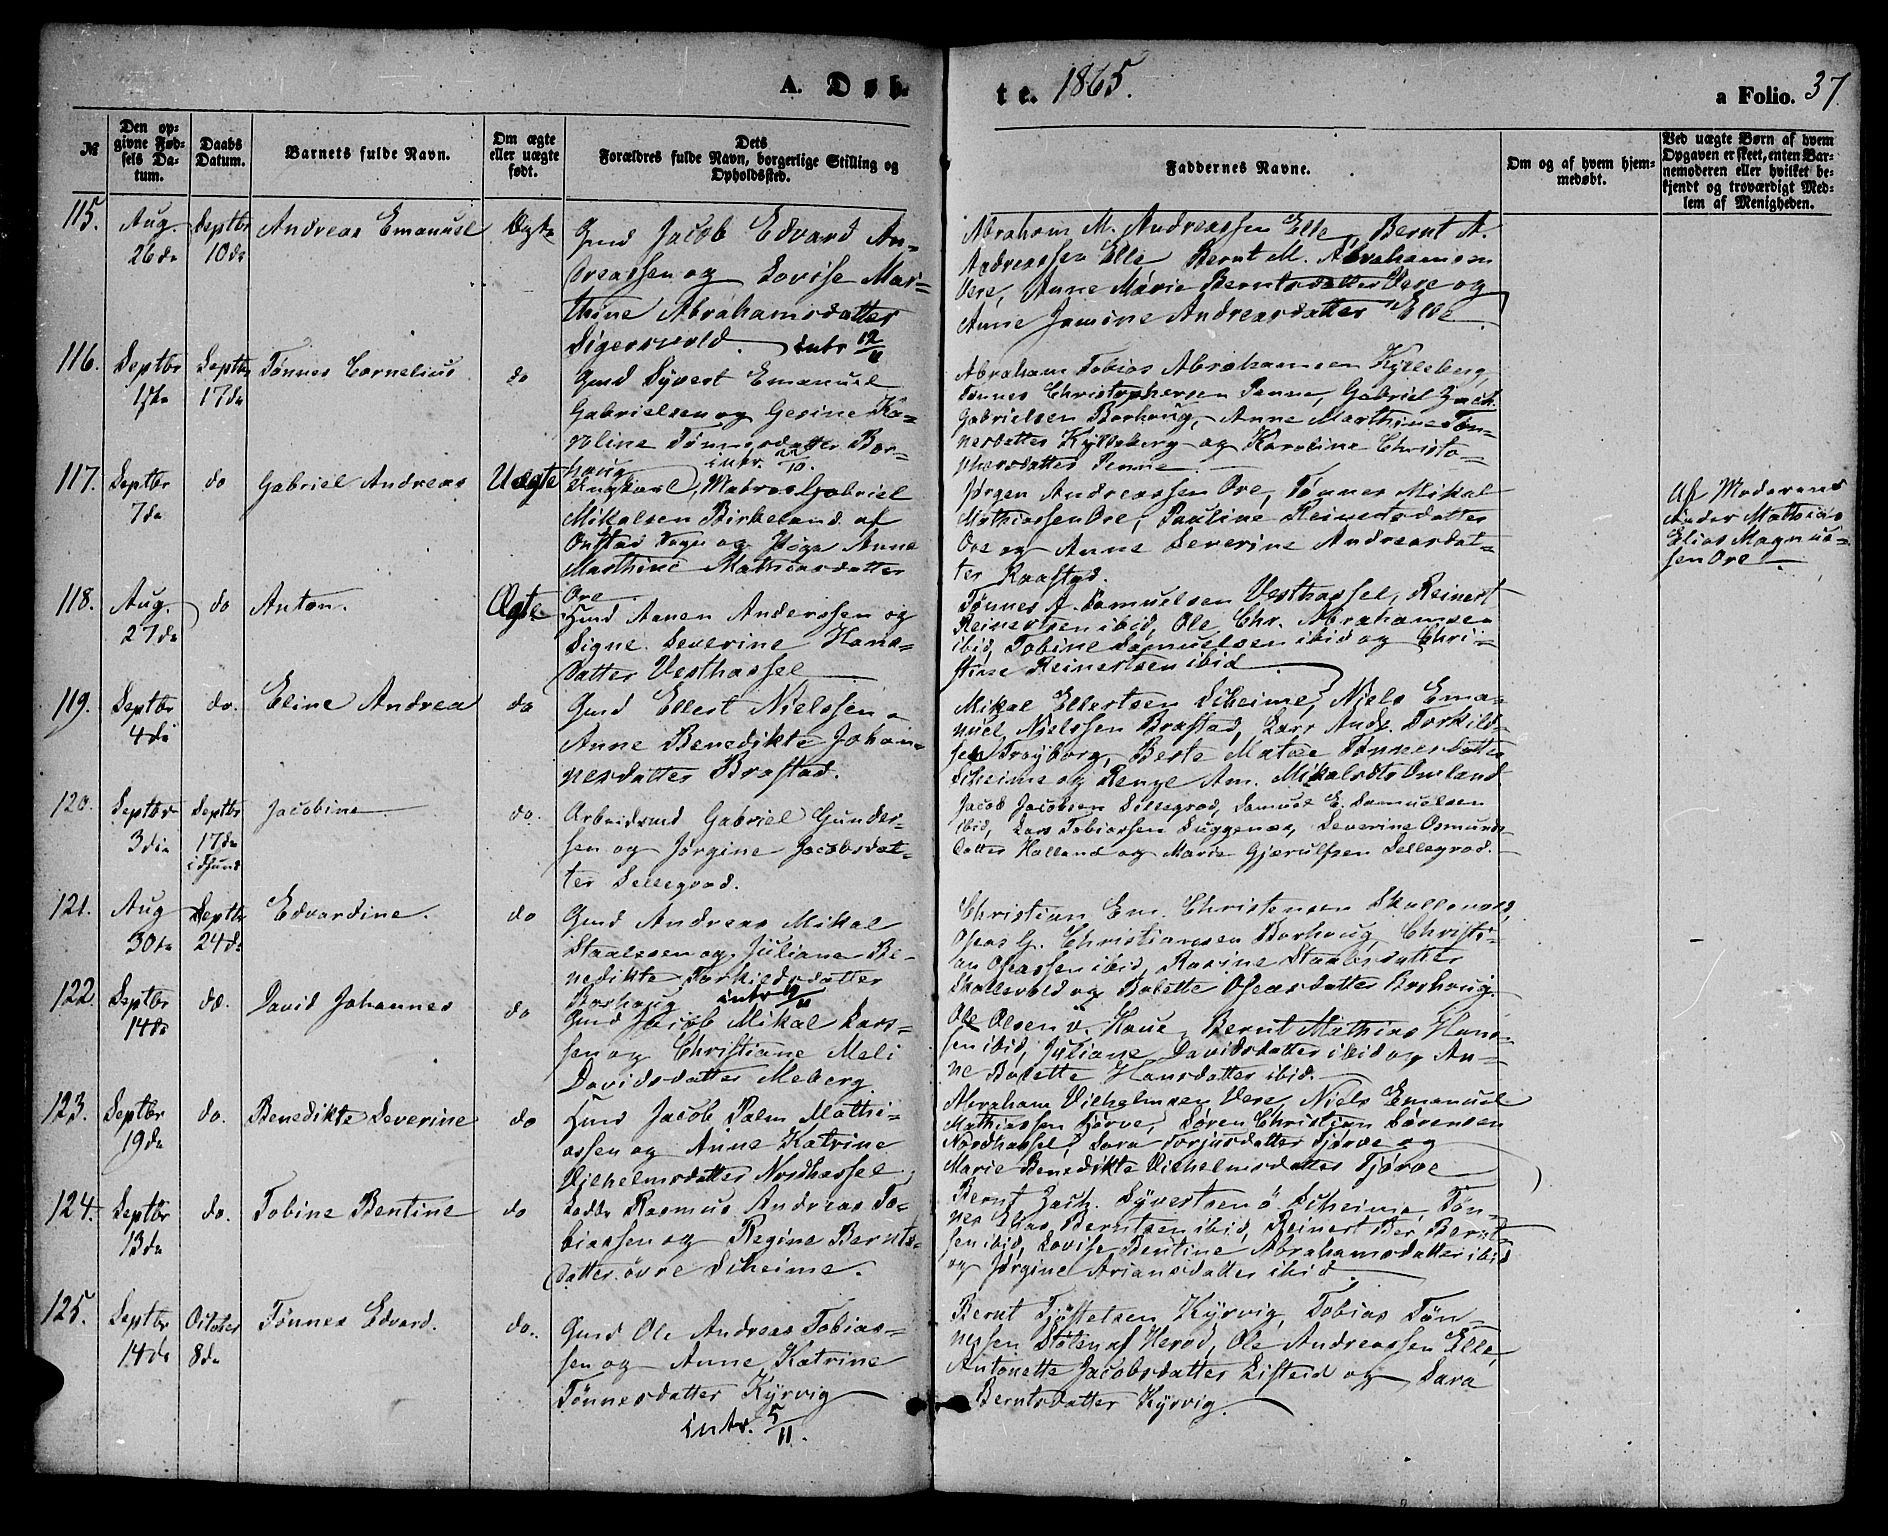 A. Døb-
te. 1865.
a Folio. 37
№
Den op-
givne Fød-
sels Da-
tum.
Daabs
Datum.
Barnets fulde Navn.
Om ægte
eller uægte
født.
Dets
Forældres fulde Navn, borgerlige Stilling og
Opholdssted.
Faddernes Navne.
Om og af hvem hjem-
medøbt.
Ved uægte Børn af hvem
Opgaven er skeet, enten Bar-
nemoderen eller hvilket be-
kjendt og troværdigt Med-
lem af Menigheden.
115.
Aug.
26de
Septbr
10de
Andreas Emanuel
Ægte
Gmd Jacob Edvard An-
dreassen og Lovise Mar-
thine Abrahamsdatter
Sigersvold. intr 12/11
Abraham M. Andreassen Elle, Bernt A.
Andreassen Elle Bernt M. Abrahamsen
Vere, Anne Marie Berntsdatter Vere og
Anne Jomine Andreasdatter Elle.
116.
Septbr
Septbr
17de
Tønnes Cornelius
do
Gmd Syvert Emanuel
Gabrielsen og Gesine Ka-
roline Tønnesdatter Bor-
haug intr. 22/10.
Abraham Tobias Abrahamsen Kylleberg,
Tønnes Christophersen Penne, Gabriel Zach.
Gabrielsen Borhoug, Anne Marthine Tøn-
nesdatter Kylleberg og Karoline Christo-
phersdatter Penne.
117.
Septbr
7de
do
Gabriel Andreas
Uægte
Ungkarl, Matros Gabriel
Mikalsen Birkeland af
Onstad Sogn og Pige Anne
Marthine Mathiasdatter
Ore
Jørgen Andreassen Ore, Tønnes Mikal
Mathiassen Ore, Pauline Reinertsdatter
Ore og Anne Severine Andreasdat-
ter Raastad.
Af Moderens
Fader Mathias
Elias Magnus-
sen Ore.
118.
Aug.
27de
do
Anton.
Ægte
Hmd Aanen Anderssen og
Signe Severine Hans-
datter Vesthassel
Tønnes A. Samuelsen Vesthassel, Reinert
Reinertsen ibid, Ole Chr. Abrahamsen
ibid, Tobine Samuelsen ibid og Chri-
stine Reinertsen ibid
119.
Septbr
4de
do.
Eline Andrea
do
Gmd Ellert Nielssen
Anne Benedikte Johan-
nesdatter Brastad.
Mikal Ellertsen Skeime, Niels Ema-
nuel Nielssen Brastad, Lars Andr. Torkild-
sen Frøyborg, Berte Matne Tønnesdatter
Skeime og Renge Am. Mikalsdtr Omland
120.
Septbr
3die
Septbr
17de
i dsund
Jacobine
do.
Arbeidsmd Gabriel Gunder-
sen og Jørgine Jacobsdat-
ter Sellegrod.
Jacob Jacobsen Sellegrod, Samuel E. Samuelsen
ibid, Lars Tobiassen Duggenæs, Severine Osmunds-
datter Holland og Marie Gjerulfsen Sellegrod.
121.
Aug
30te
Septbr
24de
Edvardine.
do
Gmd Andreas Mikal
Staalesen og Juliane Be-
nedikte Torkildsdatter
Borhoug intr 19/11
Christian Em. Christensen Skallevold,
Oseas G. Christiansen Borhoug, Christi-
an Oseassen ibid, Rasine Staalesdatter
Skallevold og Bolette Oseasdatter Borhoug.
122.
Septbr
14de
do.
David Johannes
do
Gmd Jacob Mikal Lars-
sen og Christiane Meli
Davidsdatter Meberg
Ole Olsen v. Haue, Bernt Mathias Hans-
sen ibid, Juliane Davidsdatter ibid og An-
ne Bolette Hansdatter ibid.
123.
Septbr
19de
do.
Benedikte Severine
do
Hmd Jacob Palm Mathi-
assen og Anne Katrine
Vilhelmsdatter Nordhassel
Abraham Vilhelmsen Vere, Niels Emanuel
Mathiassen Tjørve, Søren Christian Sørensen
Nordhassel, Sara Torjusdatter Tjørve og
Marie Benedikte Vilhelmsdatter Tjørve
124.
Septbr
13de
do.
Tobine Bentine
do
Lodtr Rasmus Andreas To-
biassen og Regine Bernts-
datter øvre Skeime.
Bernt Zach. Syvertsen ø Skeime, Tøn-
nes Elias Berntsen ibid, Reinert Ber Bernt-
sen ibid, Lovise Bentine Abrahamsdatter ibid
og Jørgine Ariansdatter ibid.
125.
Septbr
14de
October
8de
Tønnes Edvard.
do.
Gmd Ole Andreas Tobias-
sen og Anne Katrine
Tønnesdatter Kyrvig
intr. 5/11.
Bernt Tjøstelsen Kyrvig, Tobias Tøn-
nessen Støten af Herod, Ole Andreassen Elle,
Antonette Jacobsdatter Listeid og Sara
Berntsdatter Kyrvig.